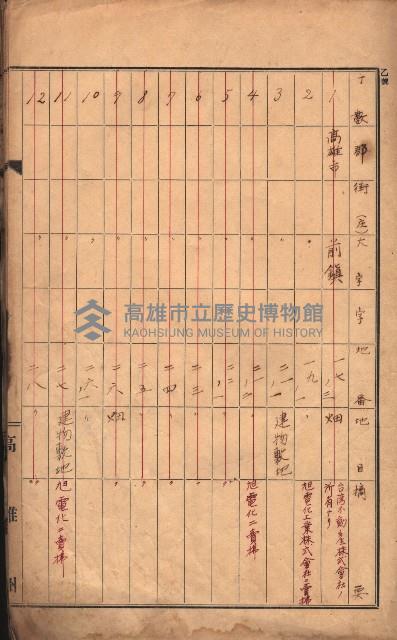 乙號
丁數 郡街(庄)大字字 地番 地目 摘要
1 高雄市 前鎮 一七ノ一 畑 台湾不動産株式會社ノ所有ナリ
2 〃 〃 一九 〃 旭電化工業株式會社ニ賣拂
3 〃 〃 建物敷地
4 〃 〃 〃 旭電化ニ賣拂
5 〃 〃 〃 〃
6 〃 〃 二三 〃 〃
7 〃 〃 二四 〃 〃
8 〃 〃 二五 〃 〃
9 〃 〃 二六 畑 〃
10 〃 〃 二六ノ一 〃 〃
11 〃 〃 二七 建物敷地 旭電化ニ賣拂
12 〃 〃 二八 〃 〃
高雄州
高雄市立歷史博物館
KAOHSIUNG MUSEUM OF HISTORY